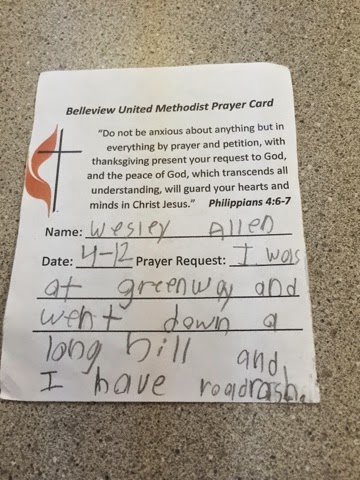 Belleview United Methodist Prayer Card
"Do not be anxious about anything but in
everything by prayer and petition, with
thanksgiving present your request to God,
and the peace of God, which transcends all
understanding, will guard your hearts and
minds in Christ Jesus." Philippians 4:6-7
Name: Wesley Allen
Date: 4-12 Prayer Request: I was
at greenway and
went down a
long hill and
I have roadrash.